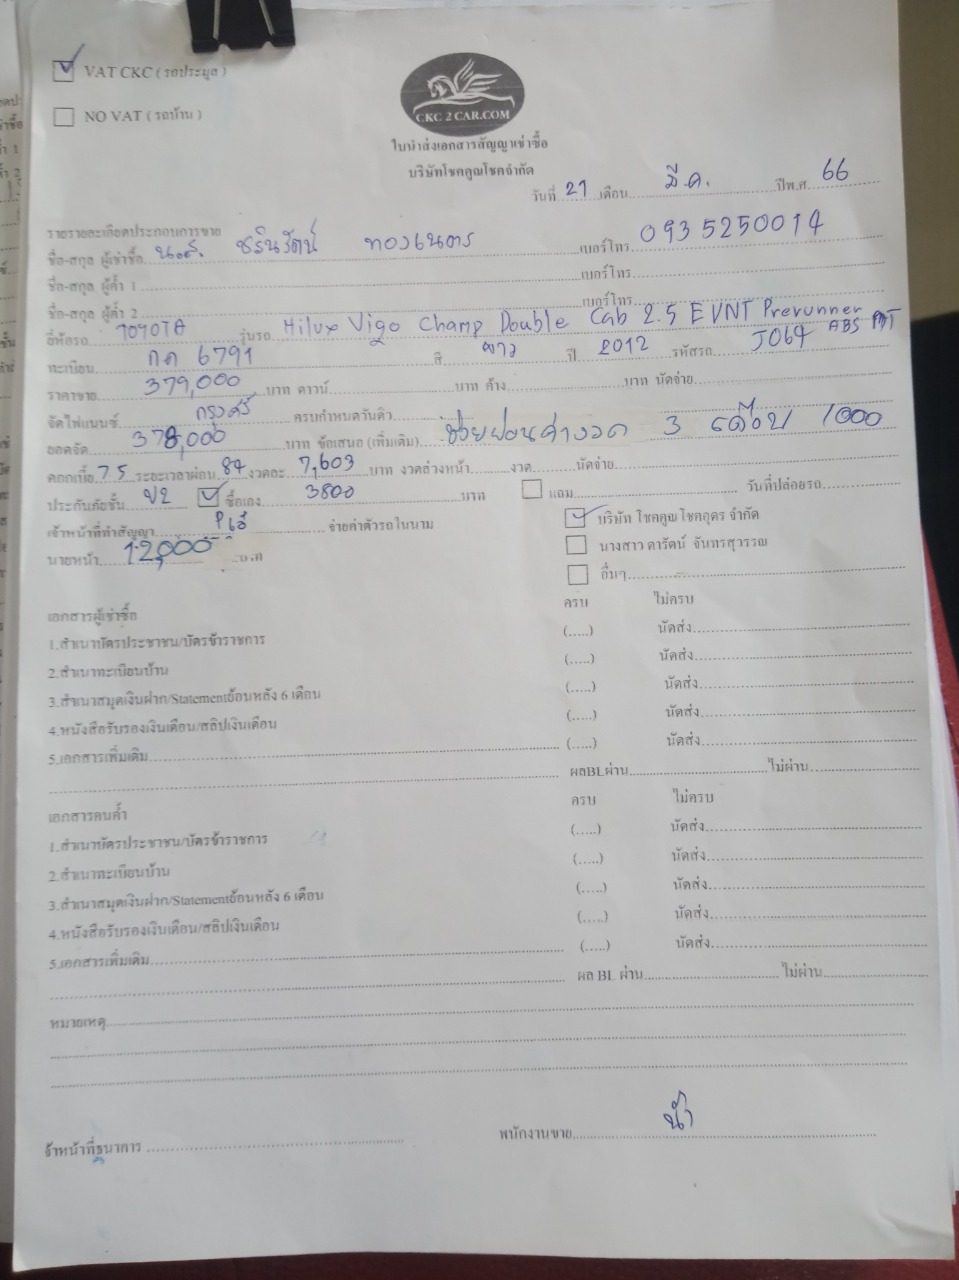 VAT CKC ( รถประมูล )
NO VAT ( รถบ้าน )
CKC 2 CAR.COM
ใบนำส่งเอกสารสัญญาเช่าซื้อ
บริษัทโชคคูณโชคจำกัด
วันที่ 21 เดือน มี.ค. ปีพ.ศ. 66
รายรายละเอียดประกอบการขาย
ชื่อ-สกุล ผู้เช่าซื้อ น.ส. ชรินรัตน์ ทองเนตร เบอร์โทร. 0935250014
ชื่อ-สกุล ผู้ค้ำ 1 เบอร์โทร
ชื่อ-สกุล ผู้ค้ำ 2 เบอร์โทร
ยี่ห้อรถ TOYOTA รุ่นรถ Hilux Vigo Champ Double Cab 2.5 E VNT Prerunner ABS
ทะเบียน กค 6791 สี ขาว ปี 2012 รหัสรถ J064
ราคาขาย 379,000 บาท ดาวน์ บาท ค้าง บาท นัดจ่าย
จัดไฟแนนซ์ กรุงศรี ครบกำหนดวันคิว
ยอดจัด 378,000 บาท ข้อเสนอ (เพิ่มเติม) ช่วยผ่อนค่างวด 3 เดือน 1000
ดอกเบี้ย 7.5 ระยะเวลาผ่อน 84 งวดละ 7,603 บาท งวดล่วงหน้า งวด นัดจ่าย
ประกันภัยชั้น ป2 ซื้อเอง 3800 บาท แถม วันที่ปล่อยรถ
เจ้าหน้าที่ทำสัญญา พี่เอ๋ จ่ายค่าตัวรถในนาม บริษัท โชคคูณโชคอุดร จำกัด
นางสาว ดารัตน์ จันทรสุวรรณ
นายหน้า 12,000
อื่นๆ
เอกสารผู้เช่าซื้อ ครบ ไม่ครบ
1.สำเนาบัตรประชาชน/บัตรข้าราชการ (.....) นัดส่ง
2.สำเนาทะเบียนบ้าน (.....) นัดส่ง
3.สำเนาสมุดเงินฝาก/Statementย้อนหลัง 6 เดือน (.....) นัดส่ง
4.หนังสือรับรองเงินเดือน/สลิปเงินเดือน (.....) นัดส่ง
5.เอกสารเพิ่มเติม (.....) นัดส่ง
ผลBLผ่าน ไม่ผ่าน
เอกสารคนค้ำ ครบ ไม่ครบ
1.สำเนาบัตรประชาชน/บัตรข้าราชการ (.....) นัดส่ง
2.สำเนาทะเบียนบ้าน (.....) นัดส่ง
3.สำเนาสมุดเงินฝาก/Statementย้อนหลัง 6 เดือน (.....) นัดส่ง
4.หนังสือรับรองเงินเดือน/สลิปเงินเดือน (.....) นัดส่ง
5.เอกสารเพิ่มเติม (.....) นัดส่ง
ผล BL ผ่าน ไม่ผ่าน
หมายเหตุ
จ้าหน้าที่ธนาคาร พนักงานขาย น้ำ